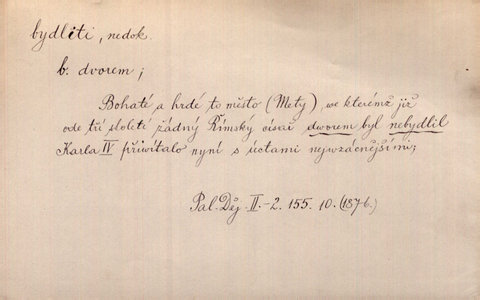 bydleti, nedok.
b. dvorem;
Bohaté a hrdé to město (Mety), we kterémž již
ode tří století žádný Římský císař dworem byl nebydlil
Karla IV přiwítalo nyní s úctami nejwzácnějšími;
Pal. Děj. II.-2. 155. 10. (1876.)